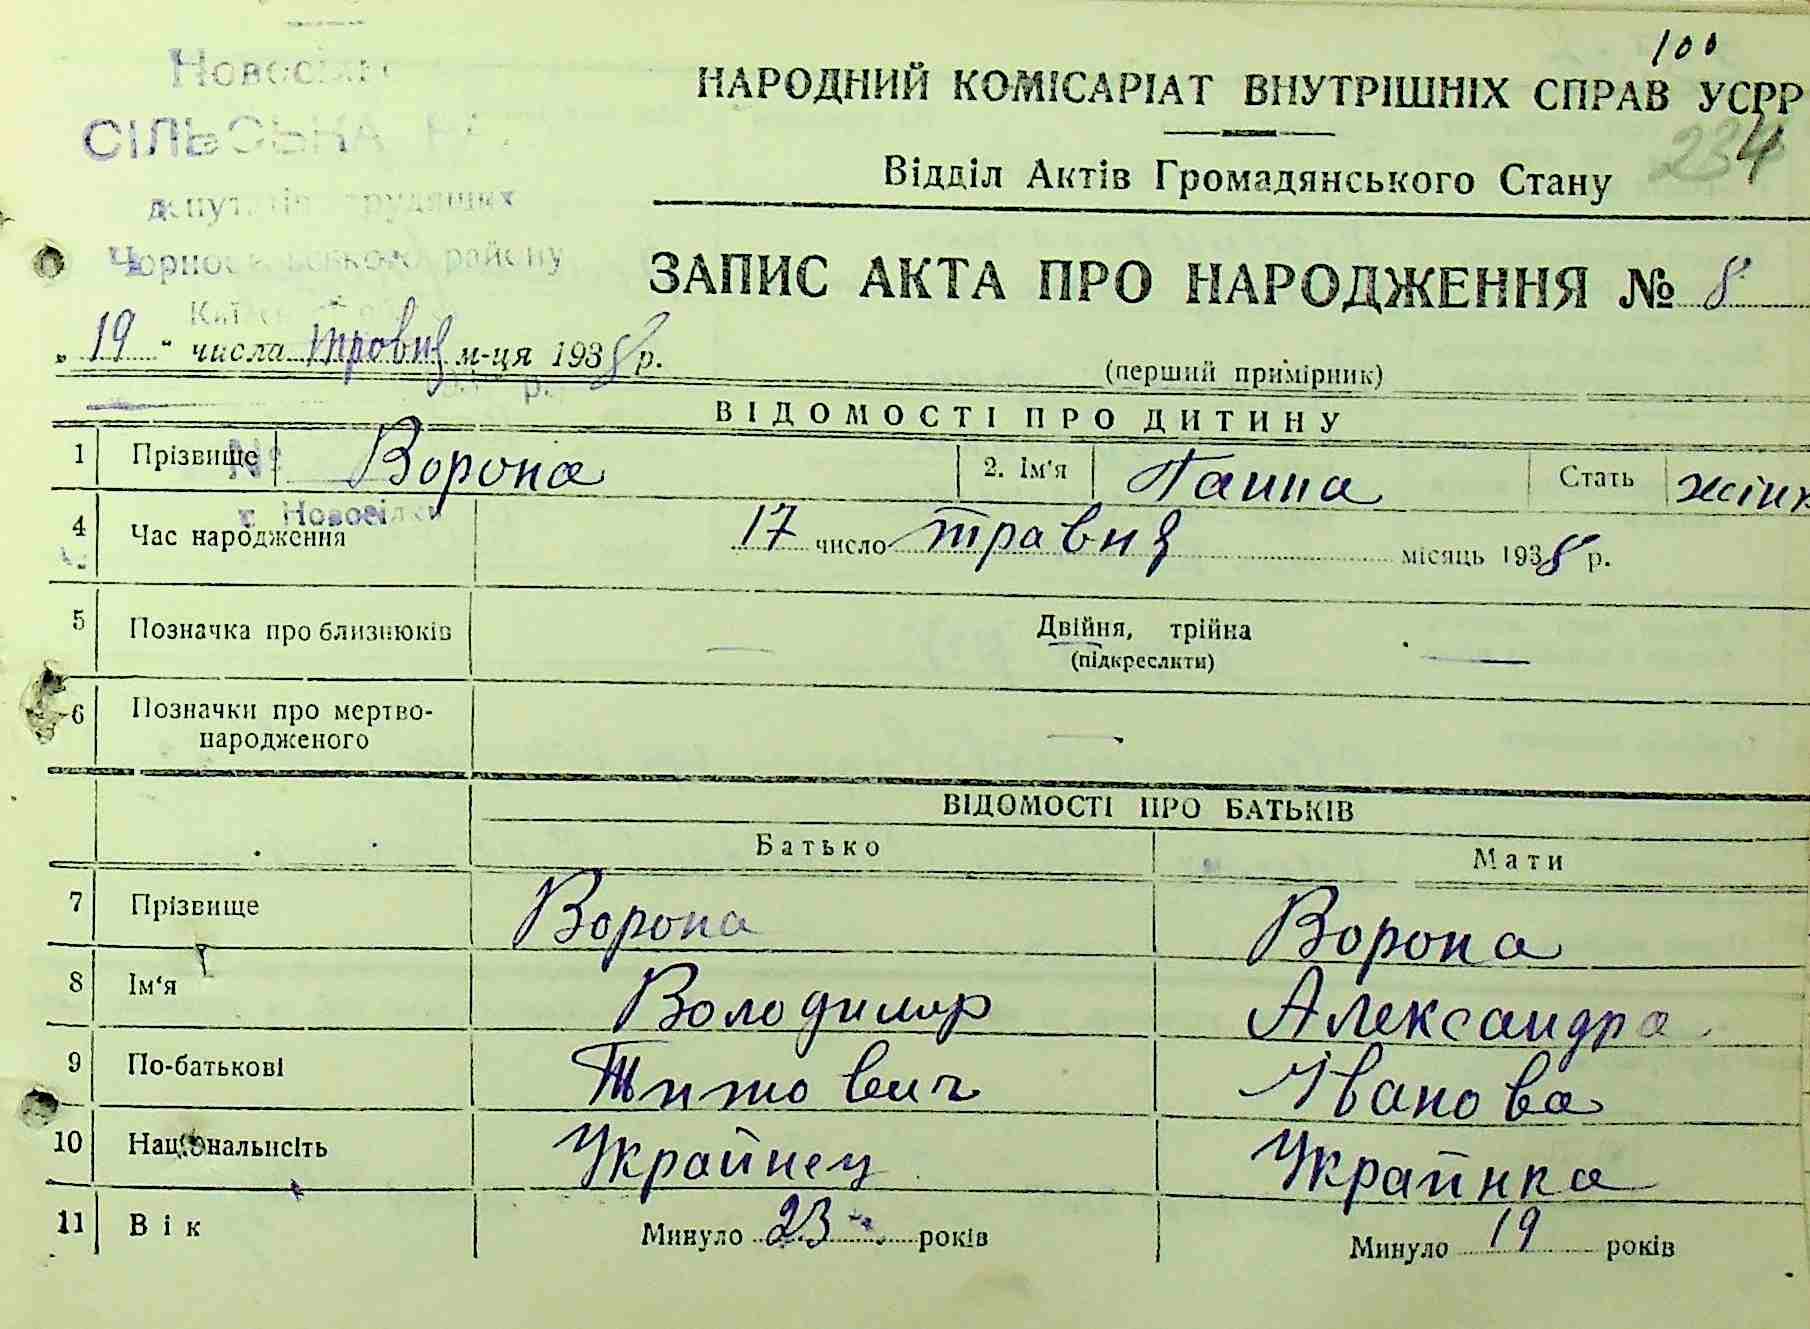 100
НАРОДНИЙ КОМІСАРІАТ ВНУТРІШНІХ СПРАВ УСРР
234
СІЛЬСЬКА
Відділ Актів Громадянського Стану
депутатів трудящих
району
ЗАПИС АКТА ПРО НАРОДЖЕННЯ № 8
„19“ числа травня м-ця 1938 р.
(перший примірник)
р.
ВІДОМОСТІ ПРО ДИТИНУ
1 Прізвище Ворона 2. Ім'я Ганна Стать жінк
№
с. Новосілки
4 Час народження 17 число травня місяць 1938 р.
5 Позначка про близнюків — Двійня, трійна —
(підкреслити)
6 Позначки про мертво-
народженого —
ВІДОМОСТІ ПРО БАТЬКІВ
Батько Мати
7 Прізвище Ворона Ворона
8 Ім‘я Володимир Александра
9 По-батькові Титович Іванова
10 Національність Украйнец Украйнка
11 Вік Минуло 23 років Минуло 19 років